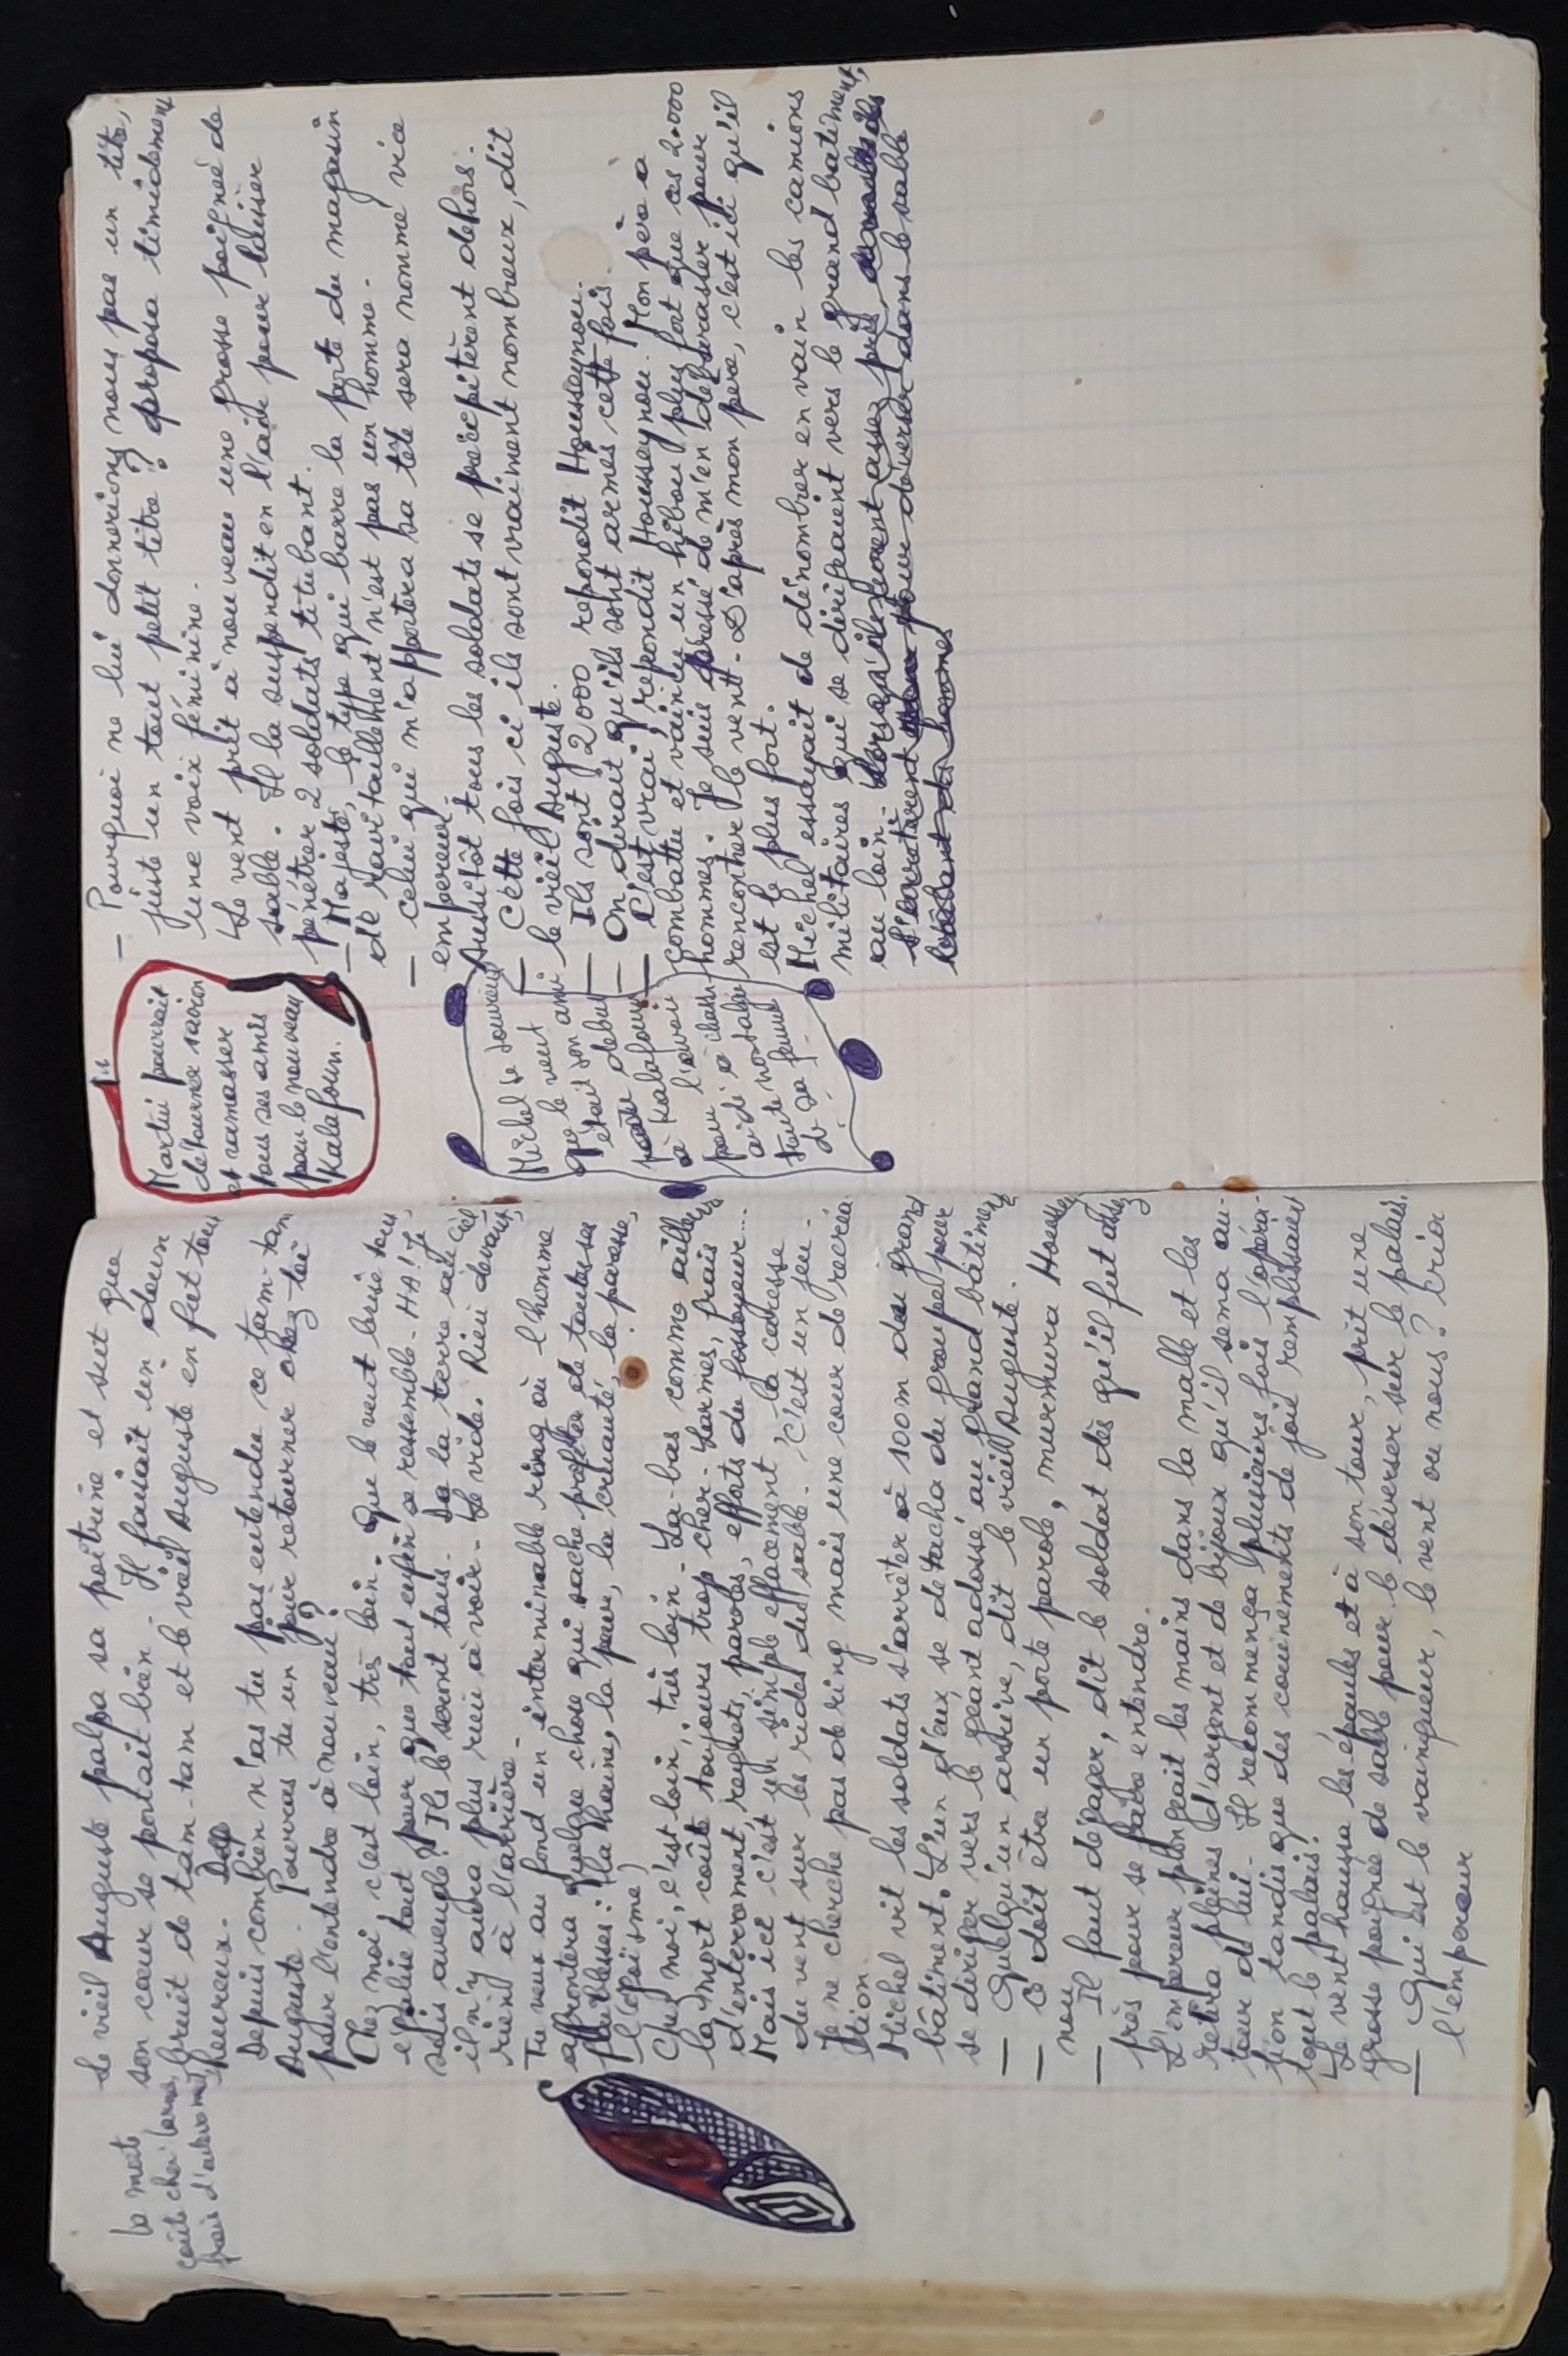 La mort
coûte cher larmes,
frais d'enterrement
Le vieil Auguste palpa sa poitrine et sut que
son cœur se portait bien. Il faisait un doux
bruit de tam-tam et le vieil Auguste en fut tout
heureux.
Depuis combien n'as tu pas entendu ce tam-tam
Auguste. Pourras tu un jour retourner chez toi
pour l'entendre à nouveau?
Chez moi, c'est loin, très loin. Que le vent brise tout,
égalise tout pour que tout enfin se ressemble. HA! Je
suis aveugle? Ils le seront tous. De la terre au ciel
il n'y aura plus rien à voir. Le vide. Rien devant,
rien à l'arrière.
Tu veux au fond un interminable ring où l'homme
affrontera quelque chose qui sache profiter de toutes ses
faiblesses: (la haine, la peur, la cruauté, la paresse,
l'égoïsme)
Chez moi, c'est loin, très loin. La-bas comme ailleurs
la mort coûte toujours trop cher. Larmes, frais
d'enterrement, regrets, paroles, efforts du fossoyeur...
Mais ici c'est un simple effacement, la caresse
du vent sur les rides du sable. C'est un jeu.
Je ne cherche pas de ring mais une cour de récréa-
tion.
Michel vit les soldats s'arrêter à 100m du grand
bâtiment. L'un d'eux, se détacha du groupe pour
se diriger vers le géant adossé au grand bâtiment
— Quelqu'un arrive, dit le vieil Auguste.
— Ce doit être un porte parole, murmura Houssey
nou
— Il faut dégager, dit le soldat dès qu'il fut assez
près pour se faire entendre.
L'empereur plongeait les mains dans la malle et les
retira pleines d'argent et de bijoux qu'il sema au-
tour de lui. Il recommença plusieurs fois l'opéra-
tion tandis que des couinements de joie remplissaient
tout le palais.
Le vent haussa les épaules et à son tour, prit une
grosse poignée de sable pour le déverser sur le palais.
— Qui est le vainqueur, le vent ou nous? cria
l'empereur
Martin pourrait
détourner savion
et ramasser
tous ses amis
pour le nouveau
Kalafoun.
— Pourquoi ne lui donnerions nous pas un titre,
juste un tout petit titre? proposa timidement
une voix féminine.
Le vent prit à nouveau une grosse poignée de
sable. Il la suspendit en l'air pour laisser
pénétrer 2 soldats titubant.
— Majesté, le type qui barre la porte du magasin
de ravitaillement n'est pas un homme.
— Celui qui m'apportera sa tête sera nommé vice
empereur.
Aussitôt tous les soldats se précipitèrent dehors.
— Cette fois ci ils sont vraiment nombreux, dit
le vieil Auguste.
— Ils sont 2000 repondit Housseynou.
— On dirait qu'ils sont armés cette fois.
— C'est vrai, repondit Housseynou. Mon père a
combattu et vaincu un hibou plus fort que ces 2.000
hommes. Je suis pressé de m'en débarasser pour
rencontrer le vent. D'après mon père, c'est ici qu'il
est le plus fort.
Michel essayait de dénombrer en vain les camions
militaires qui se dirigeaient vers le grand batiment,
au loin. Lorsqu'ils furent assez près,
s'arrêtèrent pour deverser dans le sable
des hommes
Michel se souvient
que le vent ami
était son
début
à Kalafoun
l'avoir
aidé
toute
de sa femme